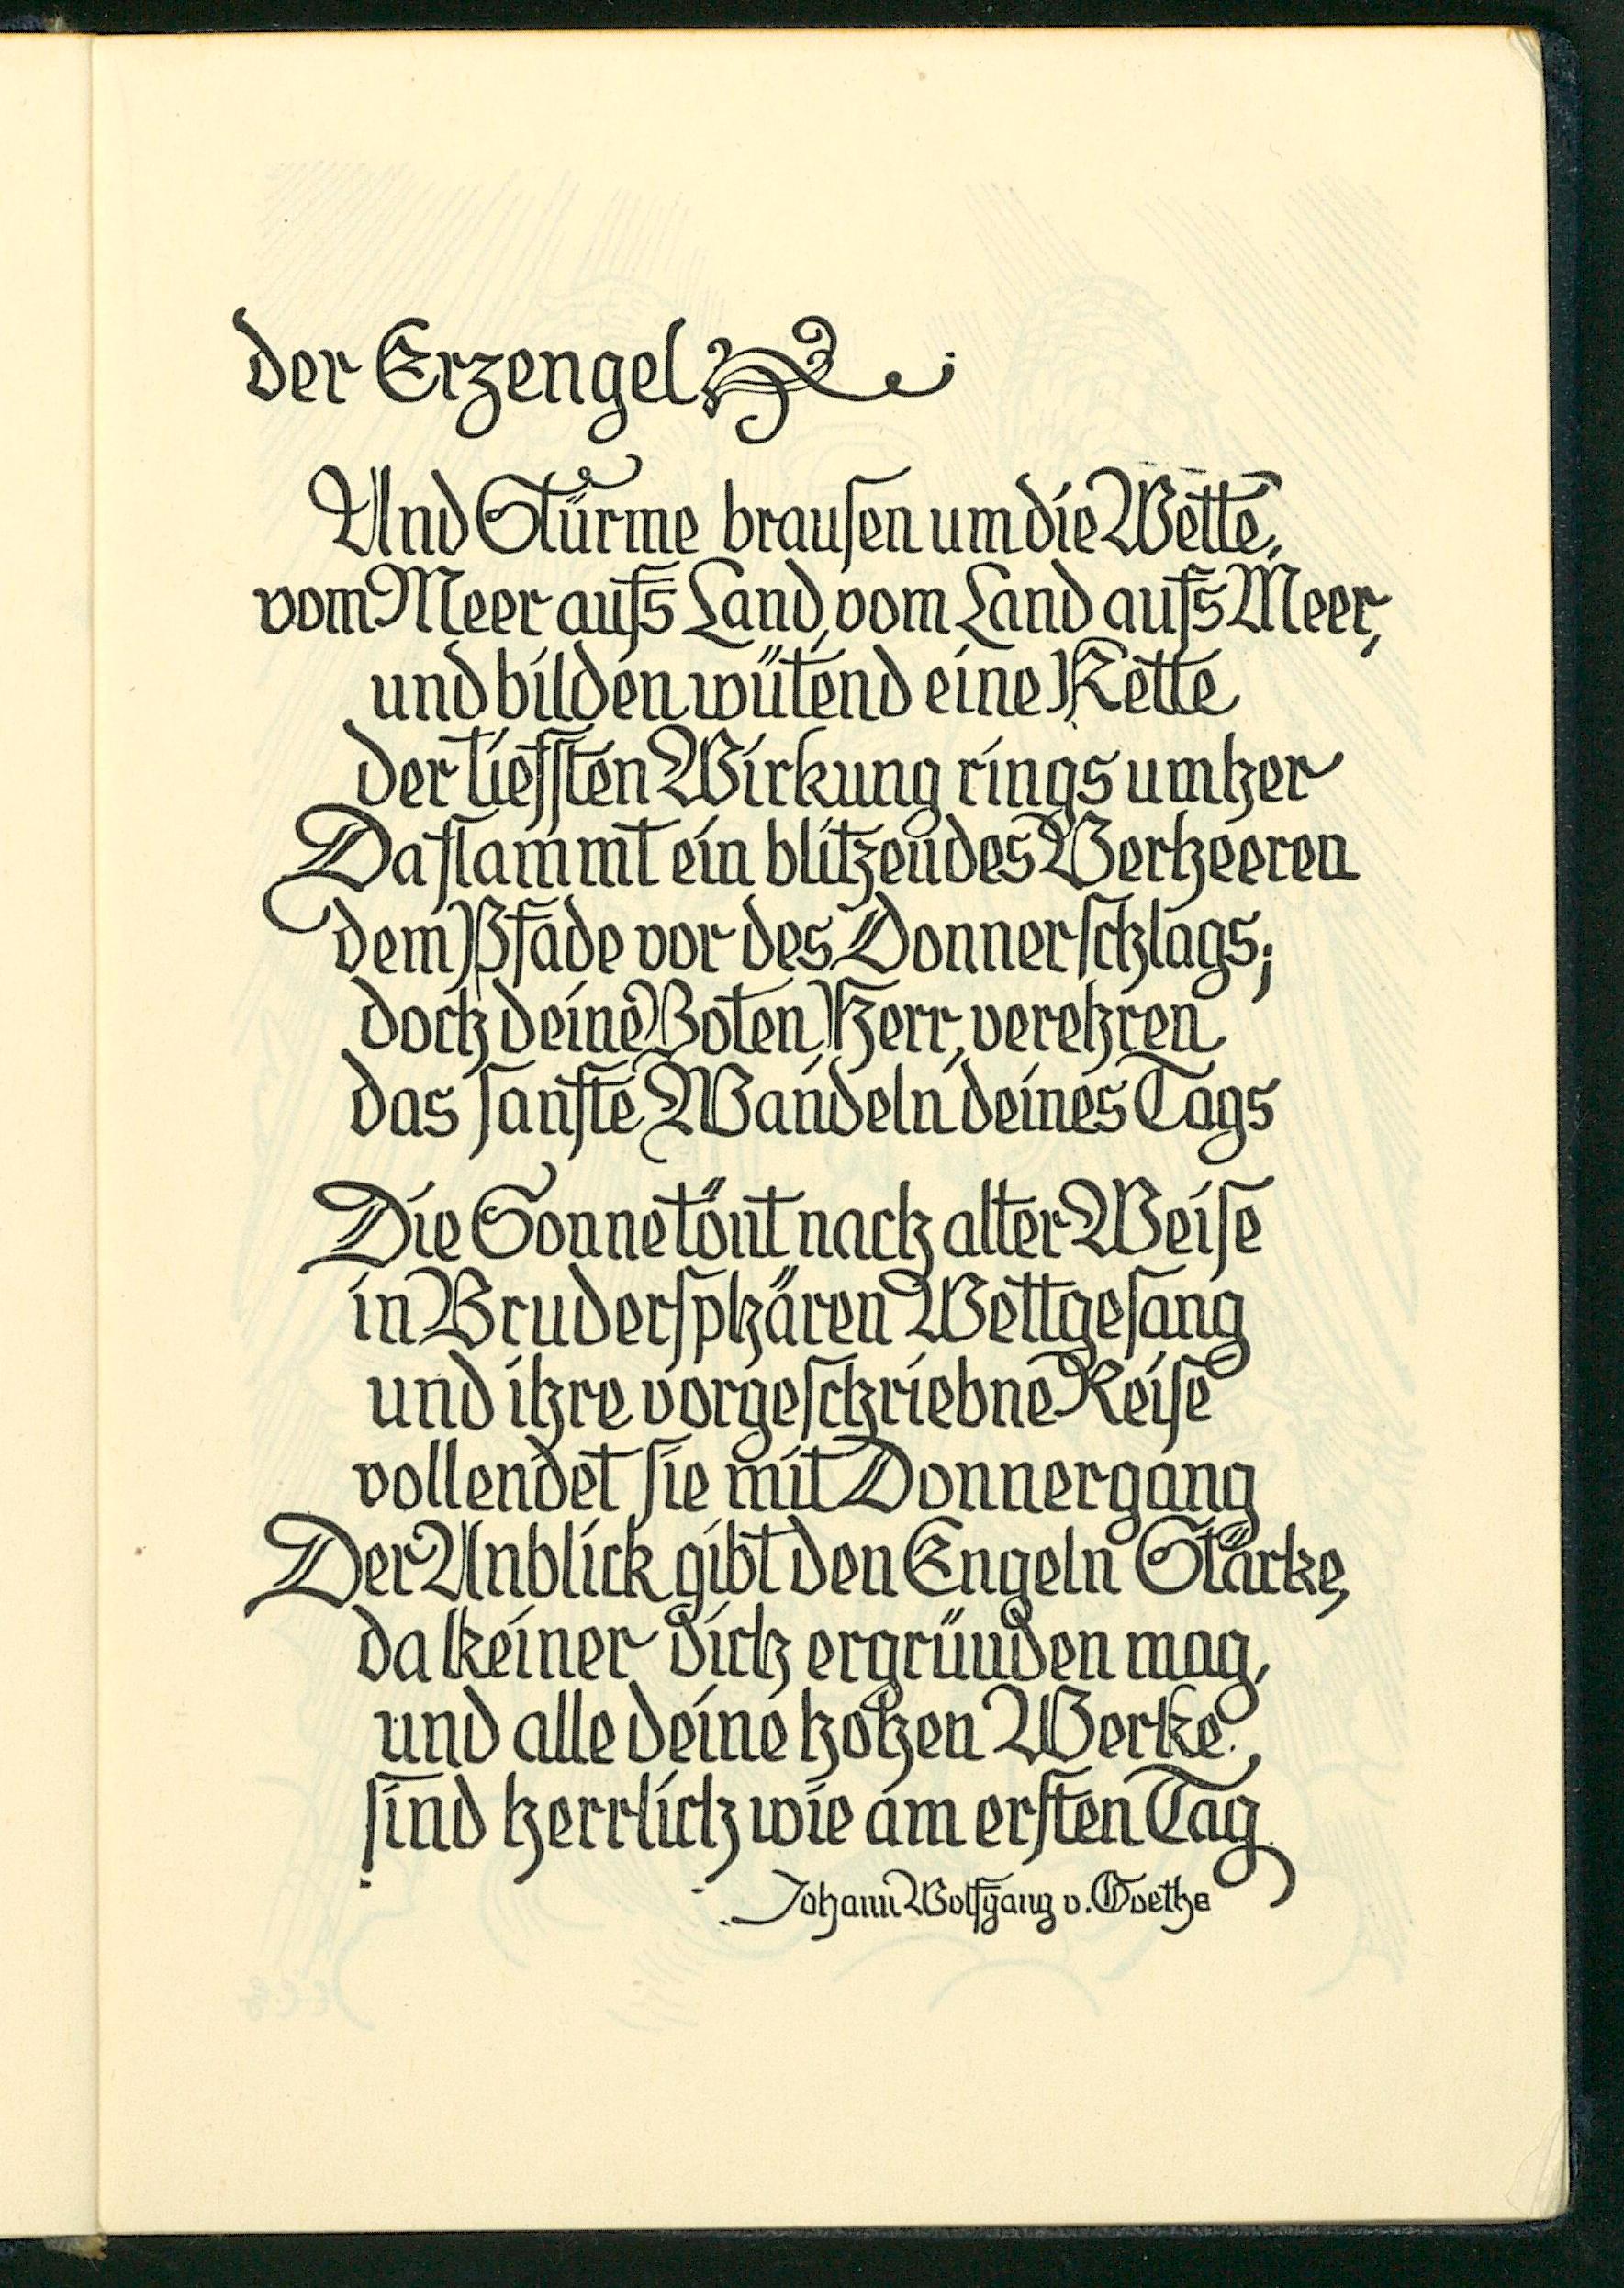 der Erzengel
Und Stürme brausen um die Wette,
vom Meer aufs Land, vom Land aufs Meer,
und bilden wütend eine Kette
der tiefsten Wirkung rings umher
Da flammt ein blitzendes Verheeren
dem Pfade vor des Donnerschlags;
doch deine Boten, Herr, verehren
das sanfte Wandeln deines Tags
Die Sonne tönt nach alter Weise
in Brudersphären Wettgesang
und ihre vorgeschriebne Reise
vollendet sie mit Donnergang
Der Anblick gibt den Engeln Stärke,
da keiner dich ergründen mag,
und alle deine hohen Werke,
sind herrlich wie am ersten Tag
Johann Wolfgang v. Goethe